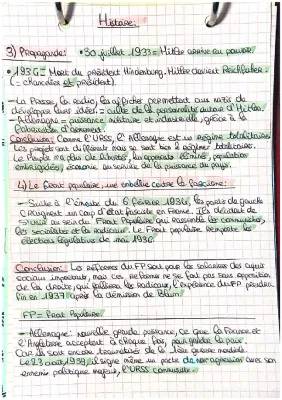 Histoire:
3) Propagande: • 30 juillet 1933 = Hitler arrive au pouvoir.
• 1936 = Mort du président Hindenburg. Hitler devient Reichführer
(= chancelier et président).
- La Presse, la radio, les affiches permettent aux nazis de
développer leurs idées = culte de la personnalité autour d'Hitler.
- Allemagne = puissance militaire et industrielle, grâce à la
d'armement.
Conclusion: Comme l'URSS, l'Allemagne est un régime totalitaire.
Les projets sont du mais se sont bien 2 régimes totalitaires.
Le Peuple n'a plus de libertés, les opposants éliminés, population
embrigadée, économie au service de la puissance du pays.
4) Le Front populaire, une embellie contre le fascisme:
- Suite à l'émeute du 6 février 1934, les partis de gauche
craignent un coup d'état fasciste en France. Ils décident de
s'unir au sein du Front Populaire qui rassemble les communistes,
les socialistes et les radicaux. Le Front populaire remporte les
élections législatives de mai 1936.
Conclusion: Les réformes du FP sont pour les salariés des acquis
sociaux importants, mais ces réformes ne se fait pas sans opposition
de la droite, qui les radicaux, l'expérience du FP prendra
fin en 1937 après la démission de Blum.
FP = Front Populaire.
- Allemagne: nouvelle grande puissance, ce que la France et
l'Angleterre acceptent à chaque fois, pour garder la paix.
Car ils sont encore traumatisés de la 1ère guerre mondiale.
Le 23 août 1939, il signe même un pacte de non agression avec son
ennemi politique majeur, l'URSS communiste.